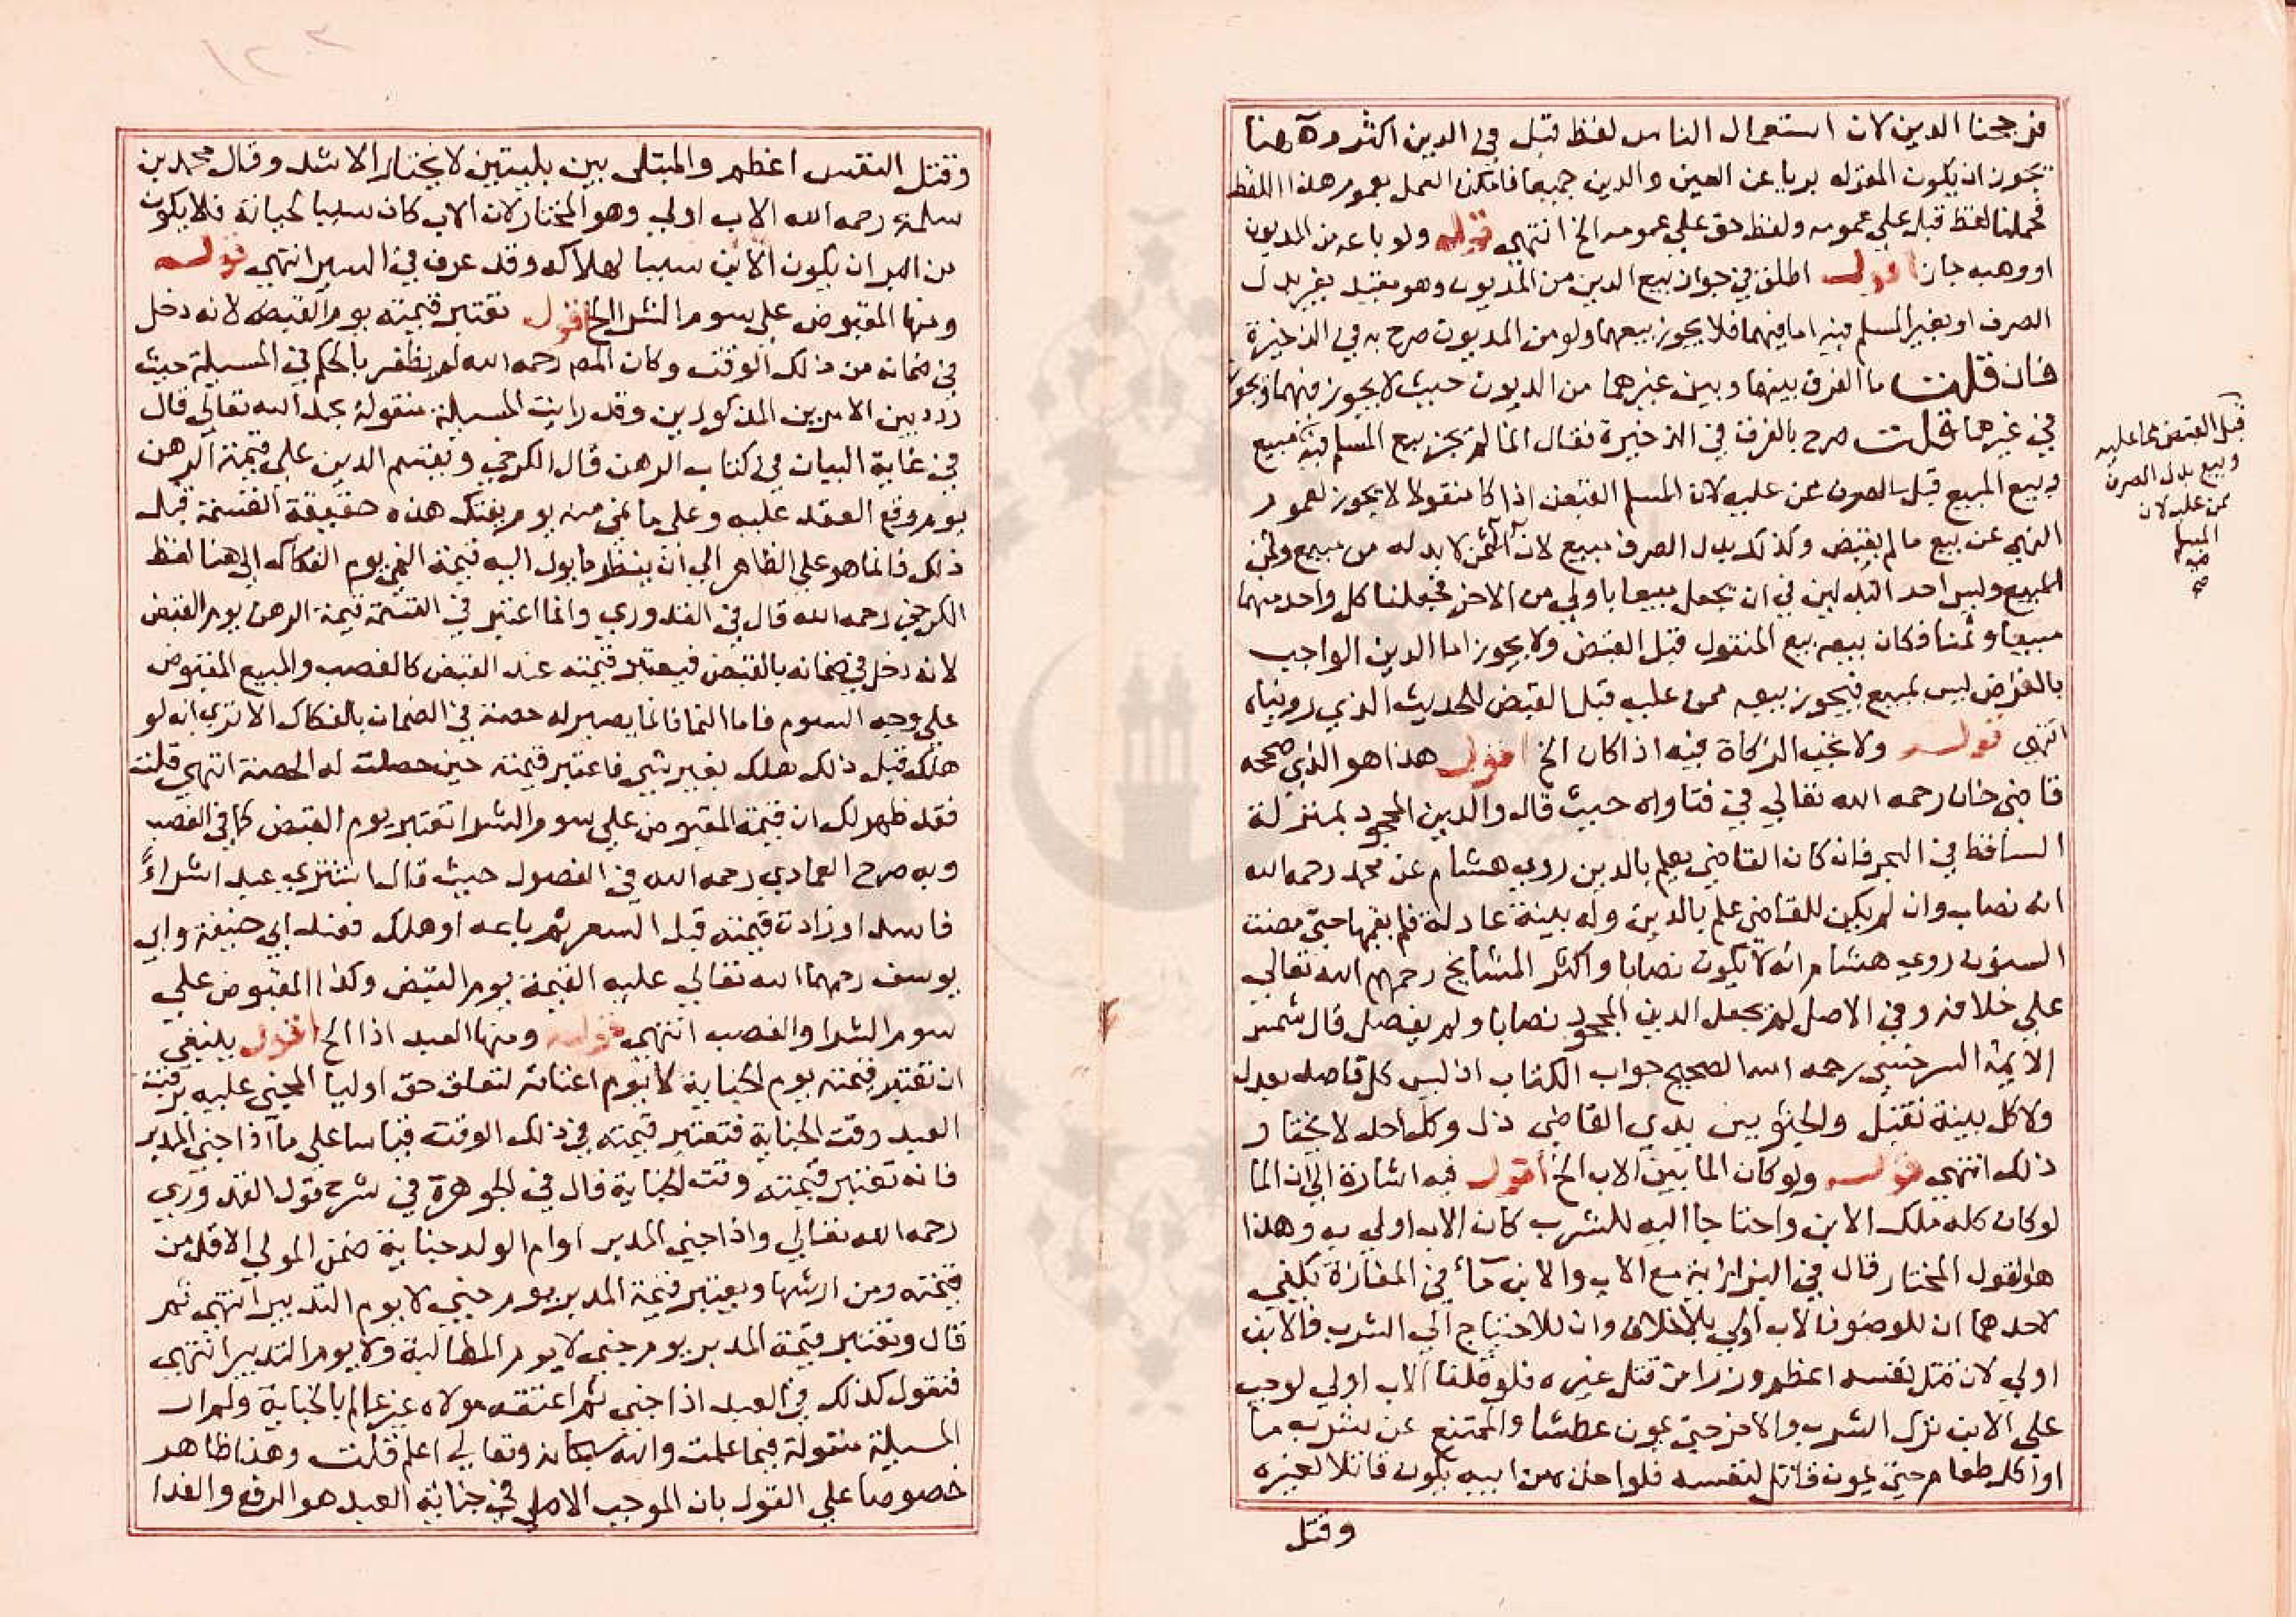 فرجحنا الدين لان استعمال الناس لفظ قبل في الدين اكثر وههنا
يجوز ان يكون المقر له بريا عن العين والدين جميعا فامكن العمل بعموم هذا اللفظ
فحملنا لفظ قبل علي عمومه ولفظ حق علي عمومه الخ انتهي قوله ولو باعه من المديون
او وهبه جاز اقول اطلق في جواز بيع الدين من المديون وهو مقيد بغير بدل
الصرف او بغير المسلم فيه اما فيهما فلا يجوز بيعهما ولو من المديون صرح به في الذخيرة
فان قلت ما الفرق بينهما وبين غيرهما من الديون حيث لا يجوز فيهما ويجوز
في غيرها قلت صرح بالفرق في الذخيرة فقال انما لم يجز بيع المسلم فيه مبيع
وبيع المبيع قبل الصرف عن عليه لان المسلم القبض اذا كا منقولا لا يجوز لعموم
النهي عن بيع ما لم يقبض وكذلك بدل الصرف مبيع لان الثمن لا بد له من مبيع وثمن
المبيع وليس احد البدلين في ان يجعل مبيعا باولي من الاخر فجعلنا كل واحد منهما
مبيعا وثمنا فكان بيعه بيع المنقول قبل القبض ولا يجوز اما الدين الواجب
بالقرض ليس بمبيع فيجوز بيعه ممن عليه قبل القبض للحديث الذي رويناه
انتهي قوله ولا تجب الزكاة فيه اذا كان الخ اقول هذا هو الذي صححه
قاضي خان رحمه الله تعالي في فتاواه حيث قال والدين المجحود بمنزلة
الساقط في البحر فان كان القاضي يعلم بالدين روي هشام عن محمد رحمه الله
انه نصاب وان لم يكن للقاضي علم بالدين وله بينة عادلة فلم يقمها حتي مضت
السنون روي هشام انه لا يكون نصابا واكثر المشايخ رحمهم الله تعالي
علي خلافه وفي الاصل لم يجعل الدين المجحود نصابا ولم يفصل قال شمس
الايمة السرخسي رحمه الله الصحيح جواب الكتاب اذ ليس كل قاض يعدل
ولا كل بينة تقبل والجثو بين يدي القاضي ذل وكل احد لا يختار
ذلك انتهي قوله ولو كان الما بين الاب الخ اقول فيه اشارة الي ان الما
لو كان كله ملك الابن واحتاجا اليه للشرب كان الاب اولي به وهذا
هو القول المختار قال في البزازية مع الاب والابن مآء في المفازة يكفي
لاحدهما ان للوضوء فالاب اولي بلا خلاف وان للاحتياج الي الشرب فالابن
اولي لان قتل نفسه اعظم وزرا من قتل غيره فلو قلنا الاب اولي لوجب
علي الابن ترك الشرب والاخر حتي يموت عطشا والممتنع عن شرب ما
او اكل طعام حتي يموت قاتل لنفسه فلو اخذ من ابيه يكون قاتلا لغيره
وقتل
قبل القبض مما عليه
وبيع بدل الصرف
ممن عليه لان
المسلم
فيه
صح
وقتل النفس اعظم والمبتلي بين بليتين لا يختار الا شد وقال محمد بن
سلمة رحمه الله الاب اولي وهو المختار لان الاب كان سببا لحياته فلا يكون
من البر ان يكون الابن سببا لهلاكه وقد عرف في السير انتهي قوله
ومنها المقبوض علي سوم الشرا الخ اقول تعتبر قيمته يوم القبض لانه دخل
في ضمانه من ذلك الوقت وكان المص رحمه الله لم يظفر بالحكم في المسيلة حيث
ردد بين الامرين المذكورين وقد رايت المسيلة منقولة بحمد الله تعالي قال
في غاية البيان في كتاب الرهن قال الكرخي ويقسم الدين علي قيمة الرهن
يوم وقع العقد عليه وعلي ما نمي منه يوم يفتك هذه حقيقة القسمة قبل
ذلك فانما هو علي الظاهر الي ان ينظر ما يول اليه قيمة النمي يوم الفكاك الي هنا لفظ
الكرخي رحمه الله قال في القدوري وانما اعتبر في القسمة قيمة الرهن يوم القبض
لانه دخل في ضمانه بالقبض فيعتبر قيمته عند القبض كالغصب والمبيع المقبوض
علي وجه السوم فاما النما فانما يصير له حصة في الضمان بالفكاك الا تري انه لو
هلك قبل ذلك هلك بغير شي فاعتبر قيمته حين حصلت له الحصة انتهي قلت
فقد ظهر لك ان قيمة المقبوض علي سوم الشرا تعتبر يوم القبض كما في الغصب
وبه صرح العمادي رحمه الله في الفصول حيث قال ما اشتري عبد اشراءً
فاسد او زادت قيمته قبل السعر ثم باعه او هلك فعند ابي حنيفة وابي
يوسف رحمهما الله تعالي عليه القيمة يوم القبض وكذا المقبوض علي
سوم الشرا والغصب انتهي قوله ومنها العبد اذا الخ اقول ينبغي
ان تعتبر قيمته يوم الجناية لا يوم اعتاقه لتعلق حق اوليا المجني عليه برقبة
العبد وقت الجناية فتعتبر قيمته في ذلك الوقت قياسا علي ما اذا جني المدبر
فانه تعتبر قيمته وقت الجناية قال في الجوهرة في شرح قول القدوري
رحمه الله تعالي واذا جني المدبر او ام الولد جناية ضمن المولي الاقل من
قيمته ومن ارشها ويعتبر قيمة المدبر يوم جني لا يوم التدبير انتهي ثم
قال وتعتبر قيمة المدبر يوم جني لا يوم المطالبة ولا يوم التدبير انتهي
فنقول كذلك في العبد اذا جني ثم اعتقه مولاه غير عالم بالجناية ولم ار
المسيلة منقولة فيما علمت والله سبحانه وتعالي اعلم قلت وهذا ظاهر
خصوصا علي القول بان الموجب الاصلي في جناية العبد هو الدفع والفدا